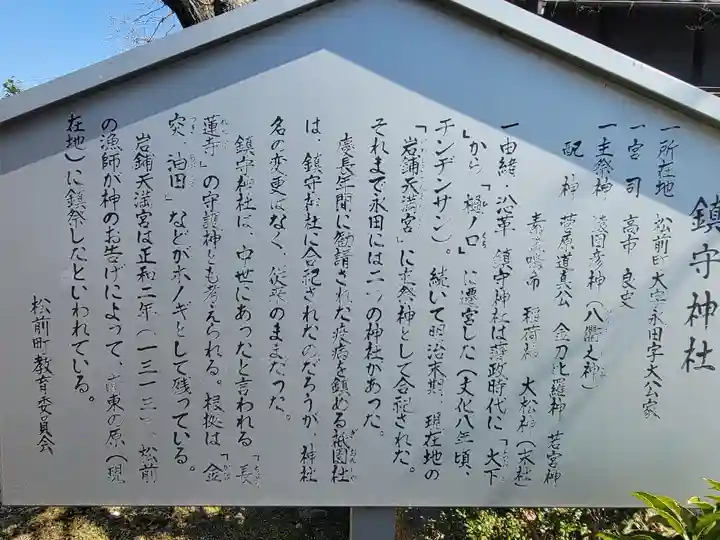 鎮守神社
一所在地 松前町大字永田字大公家
一宮司 高市良史
一主祭神 (八衢之神)
配神 菅原道真公 金刀比羅神 若宮神
素盞嗚命 稲荷神 大松神(末社)
一由緒・沿革 鎮守神社は藩政時代に「大下
」から「樋ノ口」に遷宮した(文化八年頃、
チンデンサン)。続いて明治末期、現在地の
「岩鋪天満宮」に主祭神として合祀された。
それまで永田には二つの神社があった。
慶長年間に勧請された疫病を鎮める祇園社
は、鎮守神社に合祀されたのだろうが、神社
名の変更はなく、従来のままだった。
鎮守神社は、中世にあったと言われる「長
蓮寺」の守護神とも考えられる。根拠は「金
突、油田」などがホノギとして残っている。
岩鋪天満宮は正和二年(一三一三)、松前
の漁師が神のお告げによって、東の原(現
在地)に鎮祭したといわれている。
松前町教育委員会